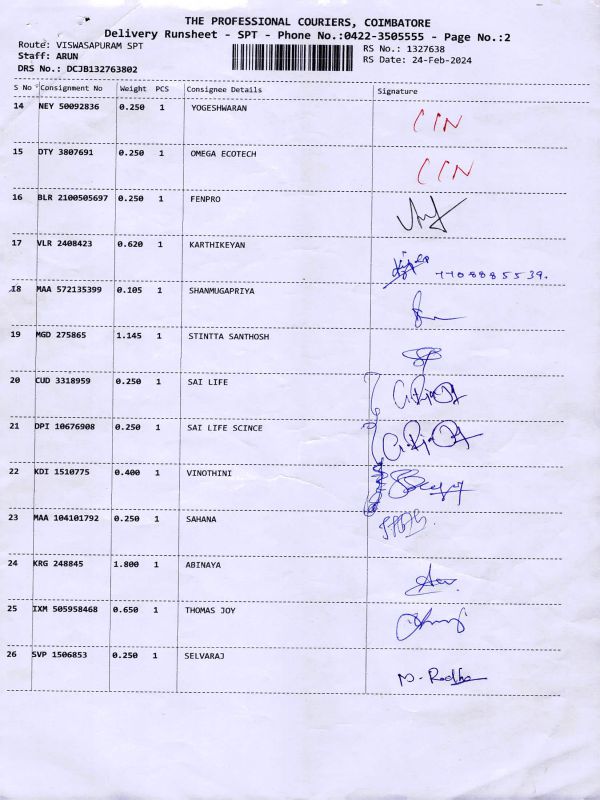 THE PROFESSIONAL COURIERS, COIMBATORE
Delivery Runsheet - SPT - Phone No.:0422-3505555 - Page No.:2
Route: VISWASAPURAM SPT RS No.: 1327638
Staff: ARUN RS Date: 24-Feb-2024
DRS No.: DCJB132763802
S No Consignment No Weight PCS Consignee Details Signature
14 NEY 50092836 0.250 1 YOGESHWARAN
15 DTY 3807691 0.250 1 OMEGA ECOTECH
16 BLR 2100505697 0.250 1 FENPRO
17 VLR 2408423 0.620 1 KARTHIKEYAN
18 MAA 572135399 0.105 1 SHANMUGAPRIYA
19 MGD 275865 1.145 1 STINTTA SANTHOSH
20 CUD 3318959 0.250 1 SAI LIFE
21 DPI 10676908 0.250 1 SAI LIFE SCINCE
22 KDI 1510775 0.400 1 VINOTHINI
23 MAA 104101792 0.250 1 SAHANA
24 KRG 248845 1.800 1 ABINAYA
25 IXM 505958468 0.650 1 THOMAS JOY
26 SVP 1506853 0.250 1 SELVARAJ